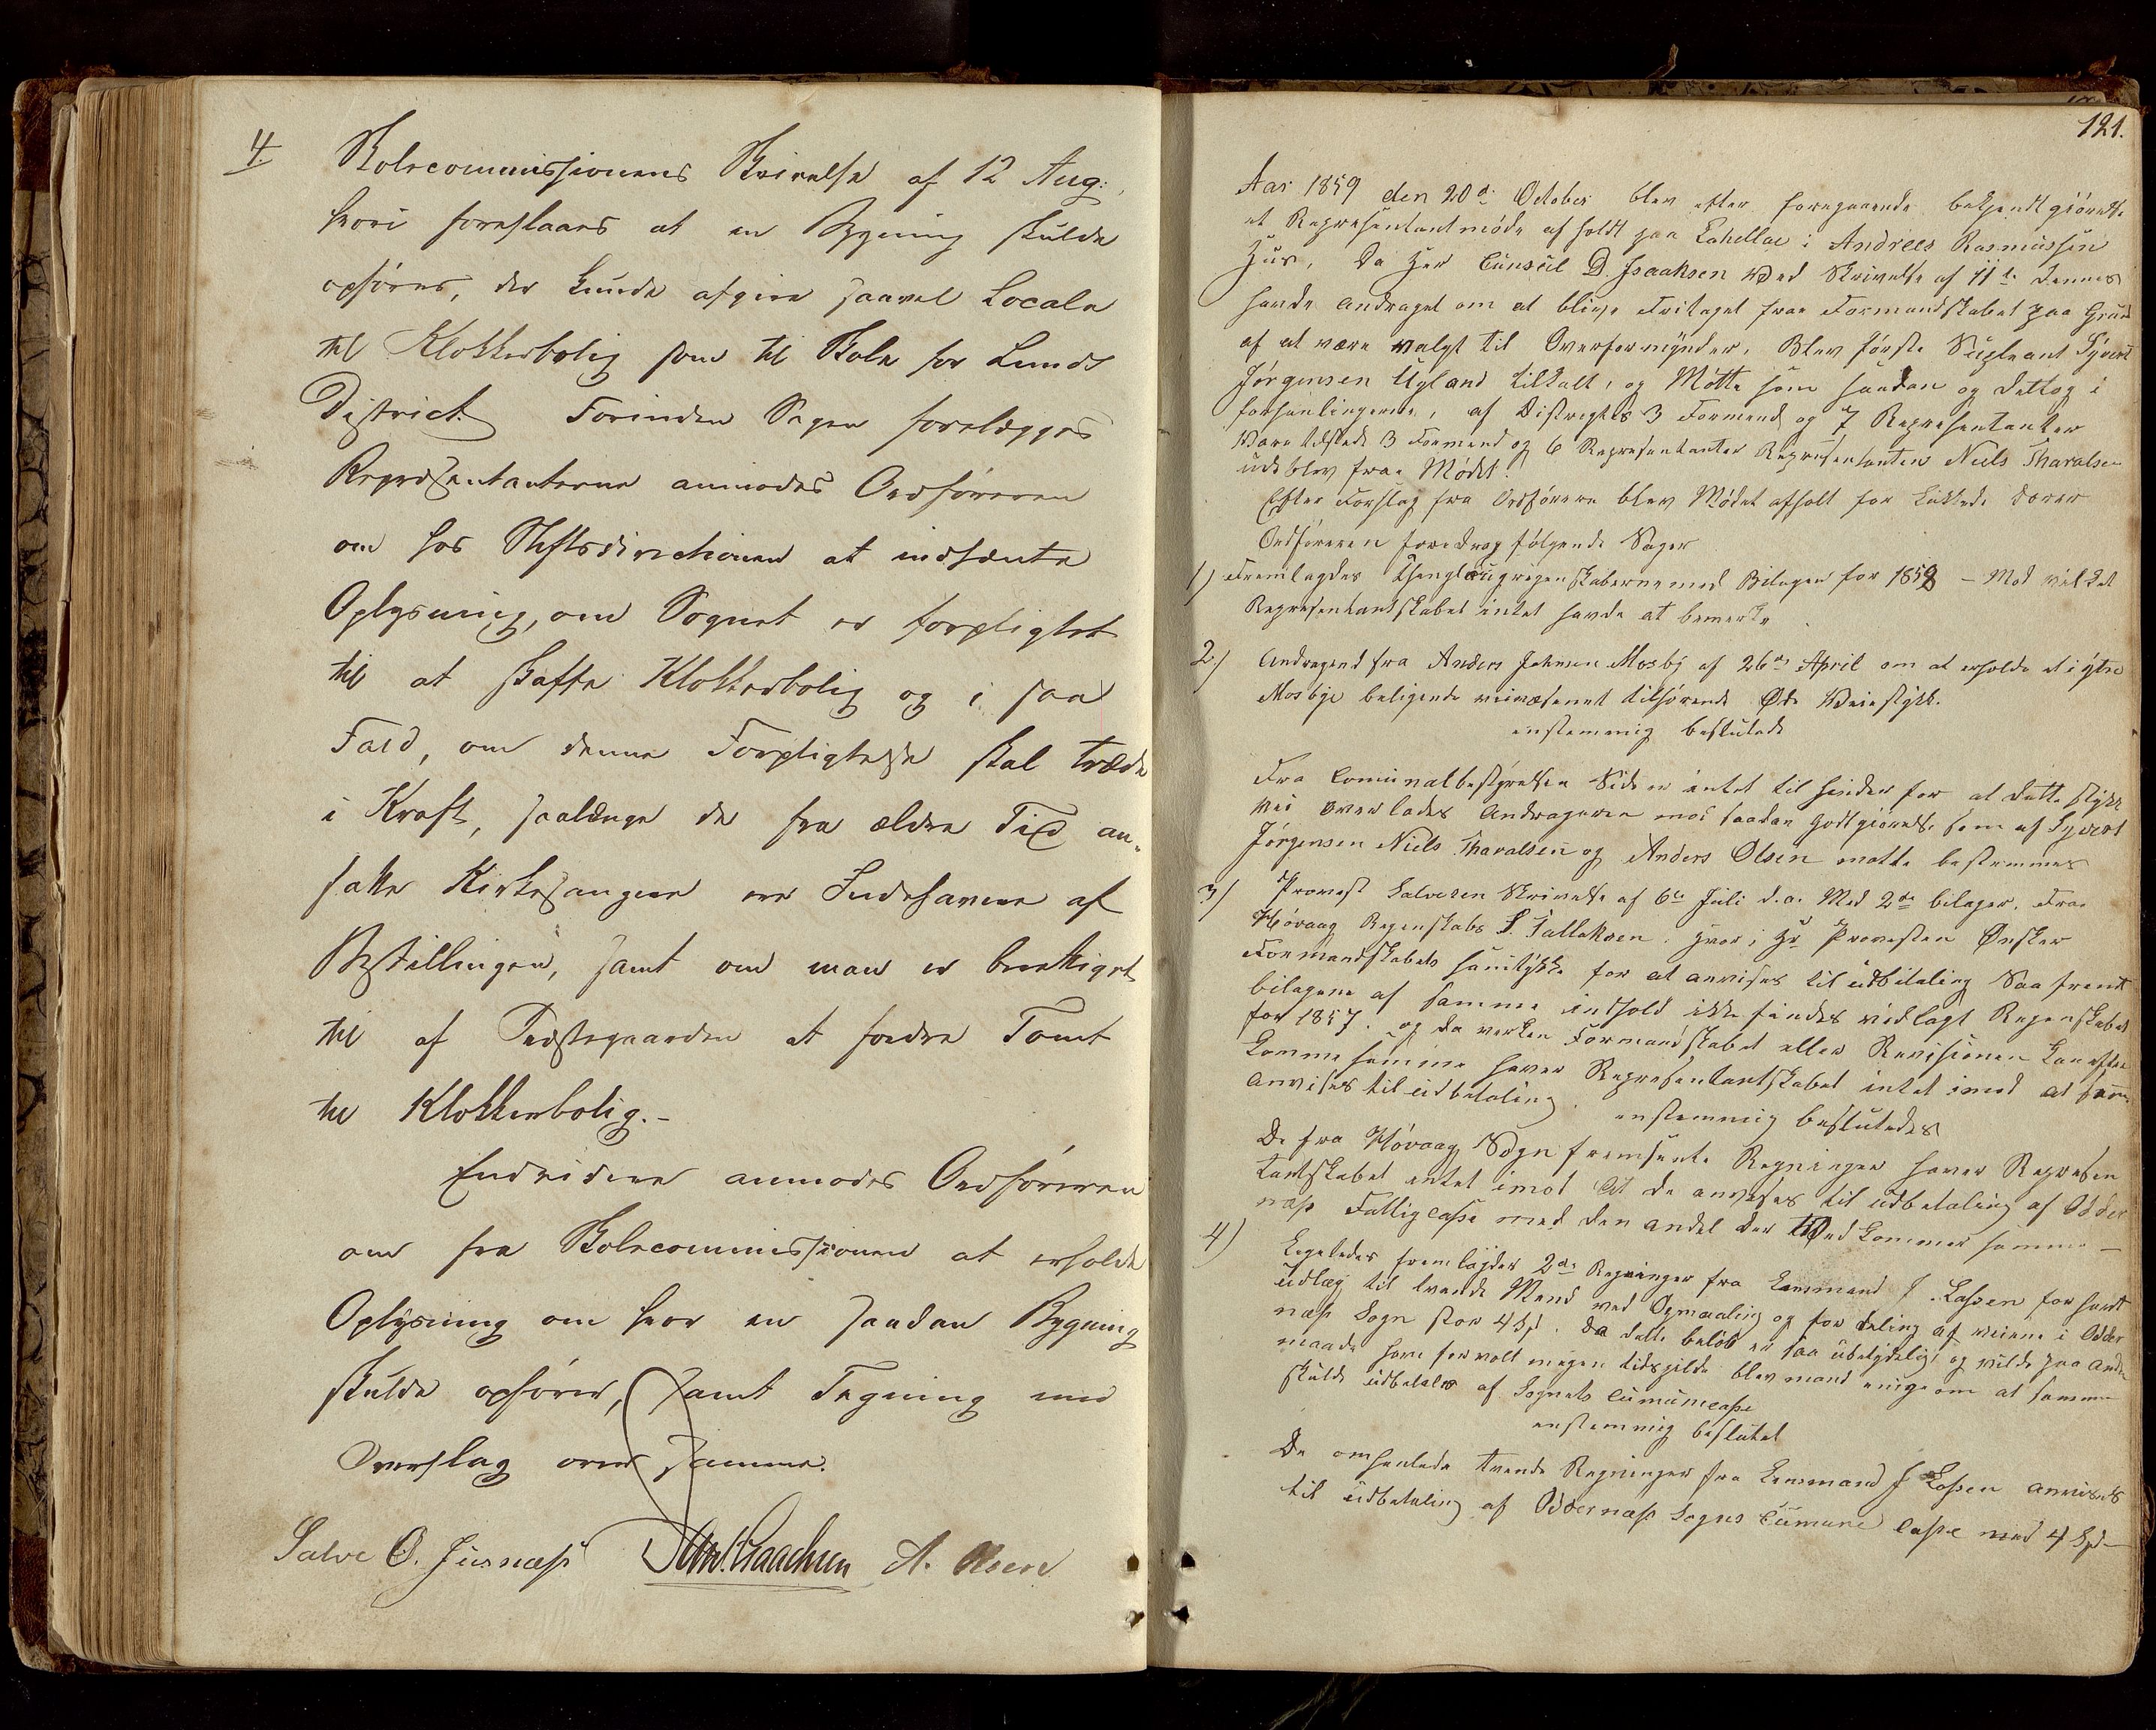 4.
Skolecommissionens Skrivelse af 12 Aug:,
hvori foreslaaes at en Bygning skulde
opføres, der kunde afgive saavel Locale
til Klokkerbolig som til Skole for Lunds
District. Forinden Sagen forelægges
Repræsentanterne anmodes Ordføreren
om hos Stiftsdirectionen at indhente
Oplysning, om Sognet er forpligtet
til at skaffe Klokkerbolig og i saa
Fald, om denne Forpligtelse skal træde
i Kraft, saalænge de fra ældre Tid an-
satte Kirkesangere ere Indehavere af
Bestillingen, samt om man er berettiget
til af Præstegaarden at fordre Tomt
til Klokkerbolig.-
Endvidere anmodes Ordføreren
om fra Skolecommissionen at erholde
Oplysning om hvor en saadan Bygning
skulde opføres, samt Tegning med
Overslag over samme.
Salve O. Jusnæss Isaachsen A. Roen
121.
Aar 1859 den 20de October blev efter foregaaende bekjendtgiörelse
et Represententmöde af holdt paa Lahellae i Andrees Rasmussen
Huus, da Her Cunsül D. Isaaksen ved Skrivelse af 11te dennes
havde andraget om at blive Fritaget fraa Formandskabet paa Grund
af at være valgt til Overformÿnder, Blev förste Supleant Syvert
Jörgensen Ugland tilkalt, og Mötte som saadan og deltog i
forhanlingerne, af Distreghts 3 Formend og 7 Representanter
Vare tilstede 3 Formend og 6 Representanter Representanten Niels Tharalsen
udeblev fraa Mödet.
Efter Forslag fra Ordförere blev Mödet afholt for Lukkede dorer
Ordföreren foredrog fölgende Sager
1) Fremlagdes regnskaberne med Bilagen for 1858 - Mod vilket
Representantskabet intet havde at bemerke
2.) Andragend fra Anders Jahnsen Mosbÿ af 26de April om at erholde et i ÿtre
Mosbÿe beligende veivæsenet tilhörende Øde Veiestÿkk.
enstemmig beslutede
Fra Comunalbestÿrelsen Side er intet til hinder for at dette stÿkk
vei overlades Andrageren mod saadan Godtgiörelse som af Syvert
Jörgensen Niels Tharalsen og Anders Olsen motte bestemmes
3) Provest Salvesen Skrivelse af 6te Juli d.a. Med 2de bilager, Fraa
Hövaag Regenskabs S. Tallaksen. hvor i Hr Provesten Ønsker
Formandskabets samtÿkke for at anvises til udbitaling Saa fremt
bilagene af samme indhold ikke findes vedlagt Regenskabet
for 1857. og da verken Formandskabet eller Revisionen kan efter
komme samme haver Representantskabet intet imod at samme
anvises til udbetaling. enstemmig beslutedes
De fra Hövaag Sogn fremsente Regninger haver Represen
tantskabet entet imod At de anveses til udbetaling af Odder
næss Fattigcasse med den andel der ved kommer samme -
4) Legeledes fremlagdes 2de Regninger fra Lensmand J. Lassen for havt
udlæg til tvende Mend ved Opmaaling og for deling af veiene i Odder
næss Sogn stor 4 Spd. da dette belöb er saa übetÿdelig og vilde paa anden
maade have forvolt megen tidspilde blev mand enige om at samme
skulde udbetales af Sognets Cumunecasse
enstemmig beslutet
De omhanlede tvende Regninger fra Lensmand J Lassen anvises
til udbetaling af Oddernæss Sogns Cumune casse med 4 Spd